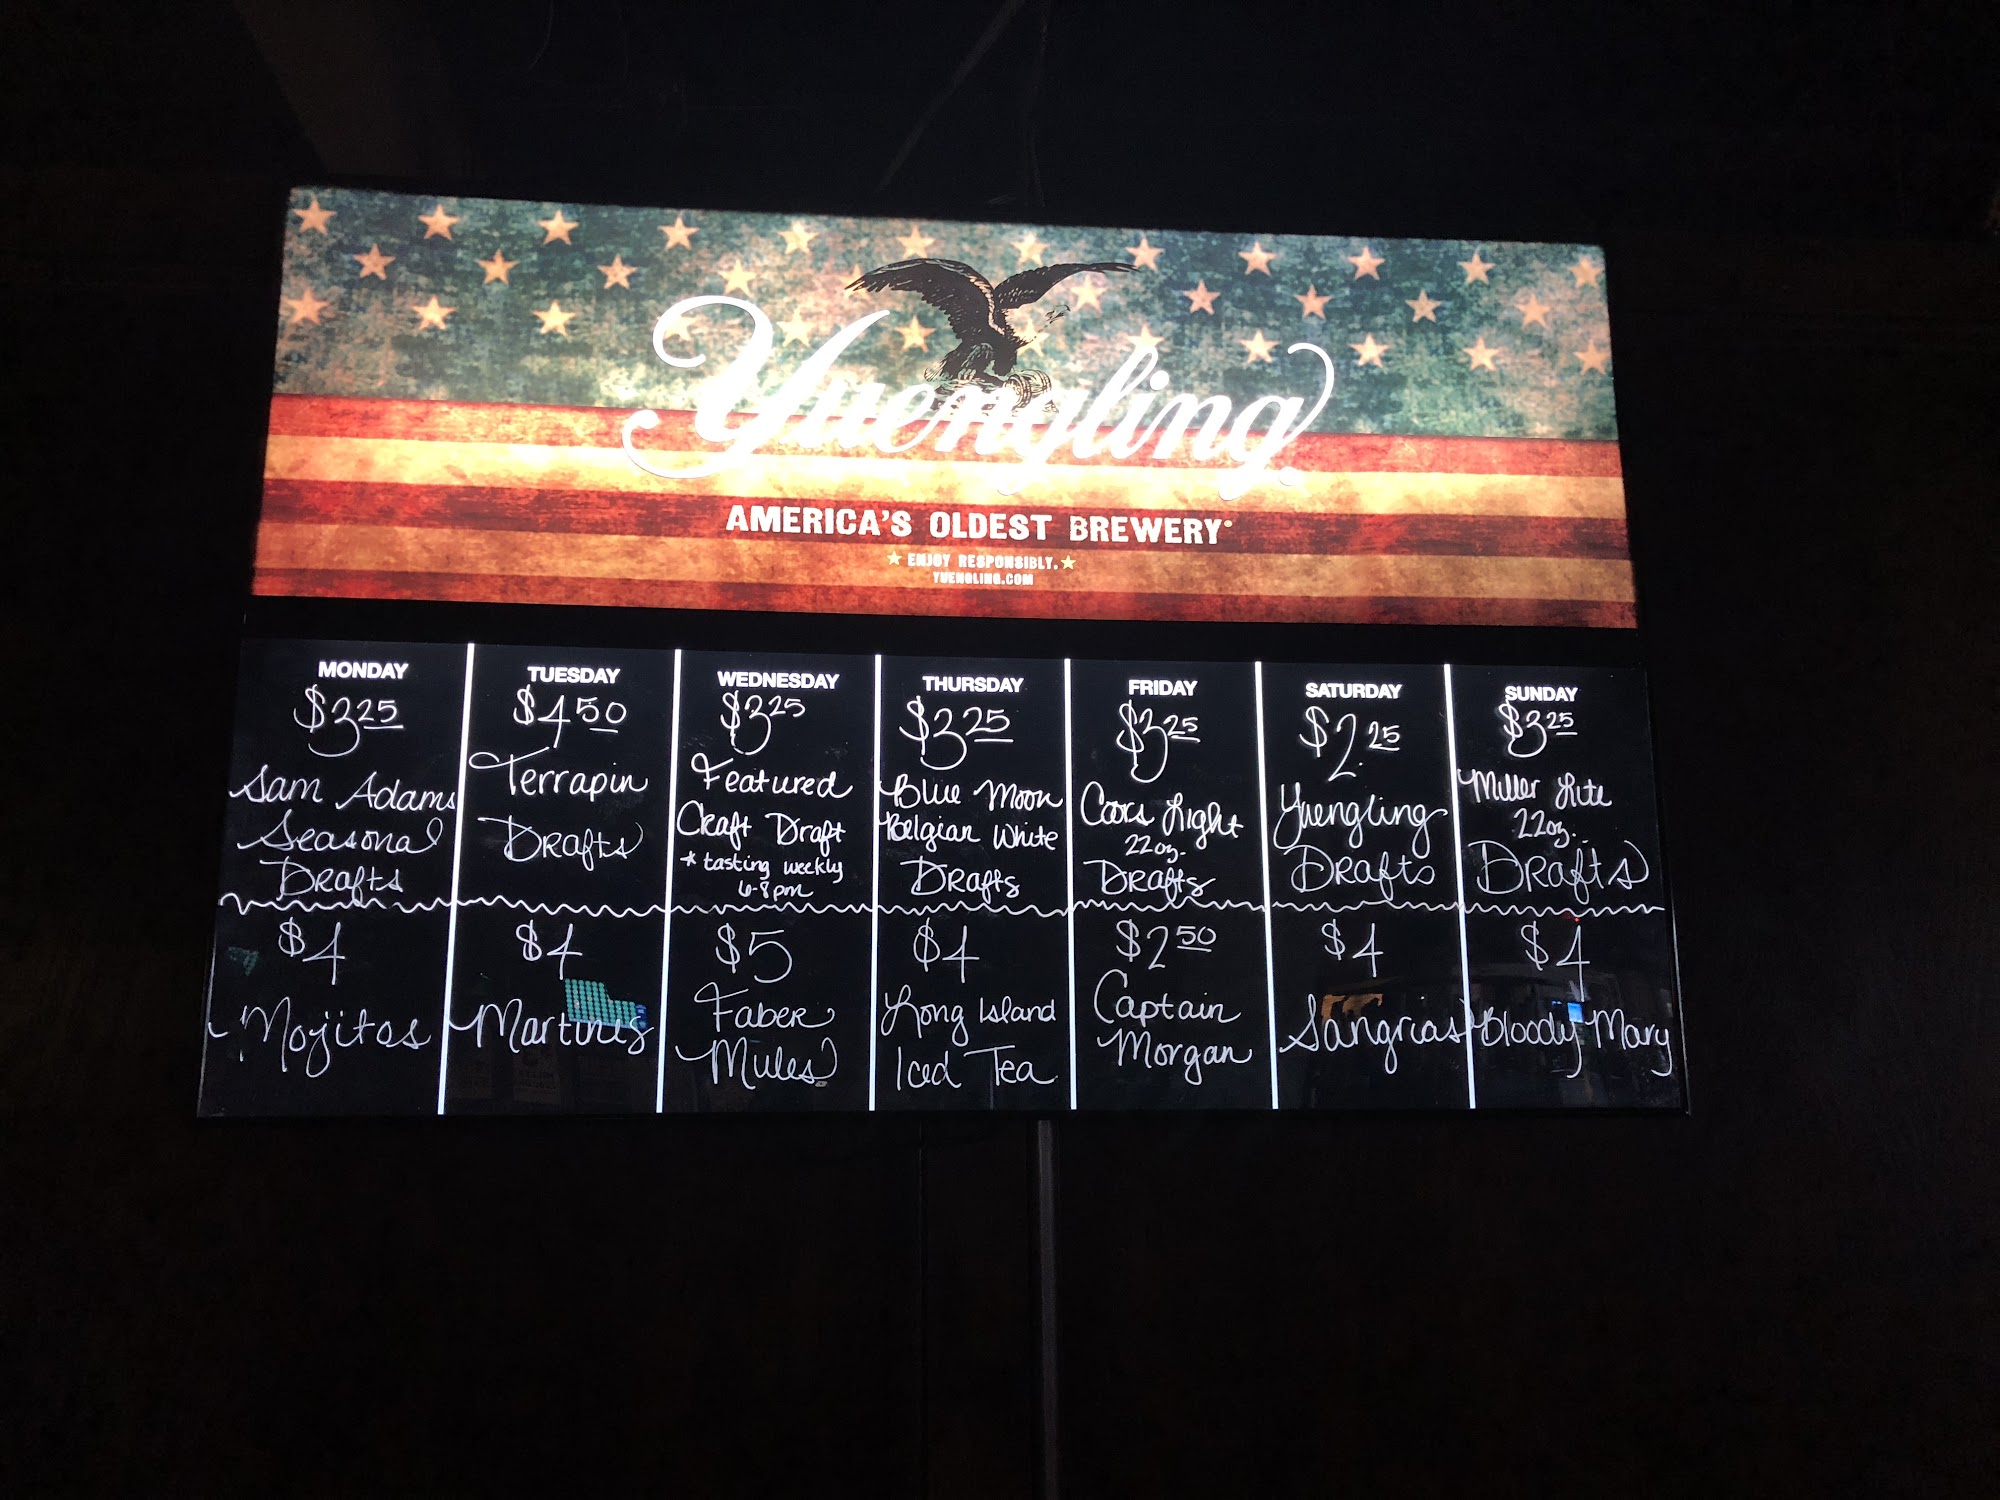 Yuengling
AMERICA'S OLDEST BREWERY®
★ ENJOY RESPONSIBLY. ★
YUENGLING.COM
MONDAY
$3.25
Sam Adams
Seasonal
Drafts
$4
Mojitos
TUESDAY
$4.50
Terrapin
Drafts
$4
Martinis
WEDNESDAY
$3.25
Featured
Craft Draft
* tasting weekly
6-8pm
$5
Faber
Mules
THURSDAY
$3.25
Blue Moon
Belgian White
Drafts
$4
Long Island
Iced Tea
FRIDAY
$3.25
Coors Light
22oz.
Drafts
$2.50
Captain
Morgan
SATURDAY
$2.25
Yuengling
Drafts
$4
Sangrias
SUNDAY
$3.25
Miller Lite
22oz.
Drafts
$4
Bloody Mary